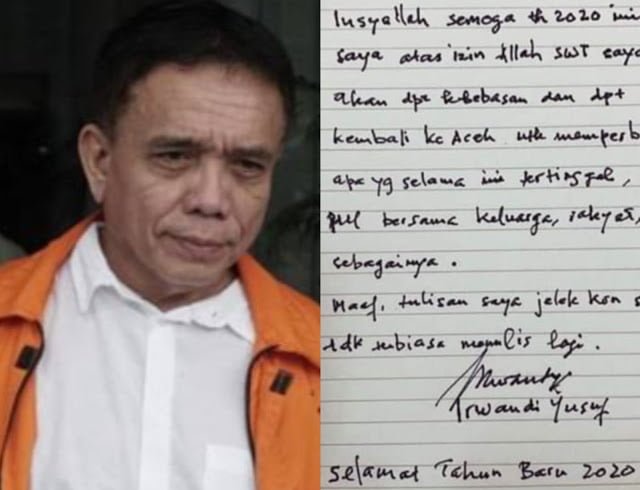 Insyallah semoga th 2020 ini
saya atas izin Allah SWT saya
akan dpt kebebasan dan dpt
kembali ke Aceh utk memperb
apa yg selama ini tertinggal,
bersama keluarga, rakyat,
sebagainya.
Maaf, tulisan saya jelek krn s
tdk terbiasa menulis lagi.
Irwandi Yusuf
Selamat Tahun Baru 2020